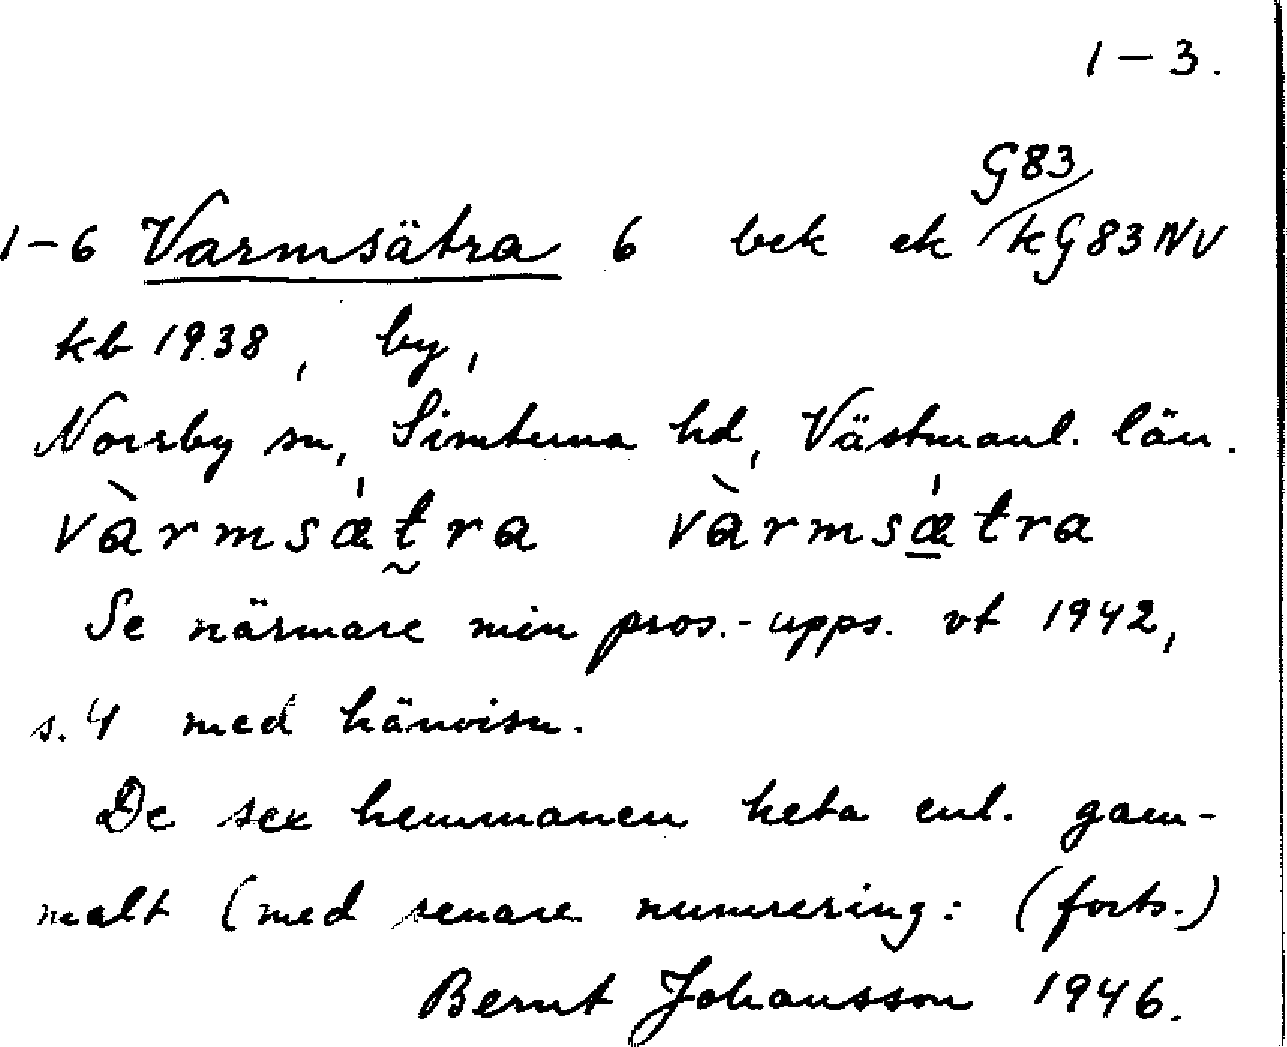 1–3.
G83
1–6 Varmsätra 6 bek ek / kG83NV
kb 1938, by,
Norrby sn, Simtuna hd, Västmanl. län.
vàrmsǽt̰ra vàrmsǽ̲tra
Se närmare min pros.-upps. vt 1942,
s. 4 med hänvisn.
De sex hemmanen heta enl. gam-
malt (med senare numrering: (forts.)
Bernt Johansson 1946.